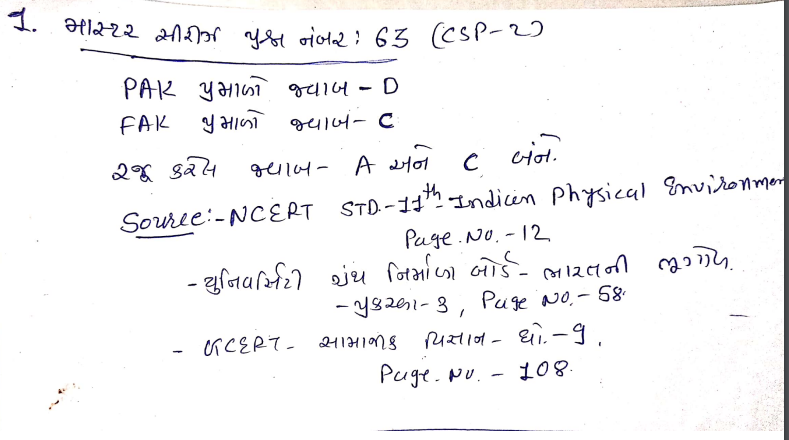 1. માસ્ટર સીરીઝ પ્રશ્ન નંબર: 63 (CSP-2)
PAK પ્રમાણે જવાબ - D
FAK પ્રમાણે જવાબ - C
રજૂ કરેલ જવાબ - A અને C બંને.
Source:- NCERT STD.-11th - Indian Physical Environmen
Page.No.-12
- યુનિવર્સિટી ગ્રંથ નિર્માણ બોર્ડ - ભારતની ભૂગોળ.
- પ્રકરણ-3, Page No.-58.
- GCERT - સામાજીક વિજ્ઞાન - ધો.-9.
Page.No. - 108.